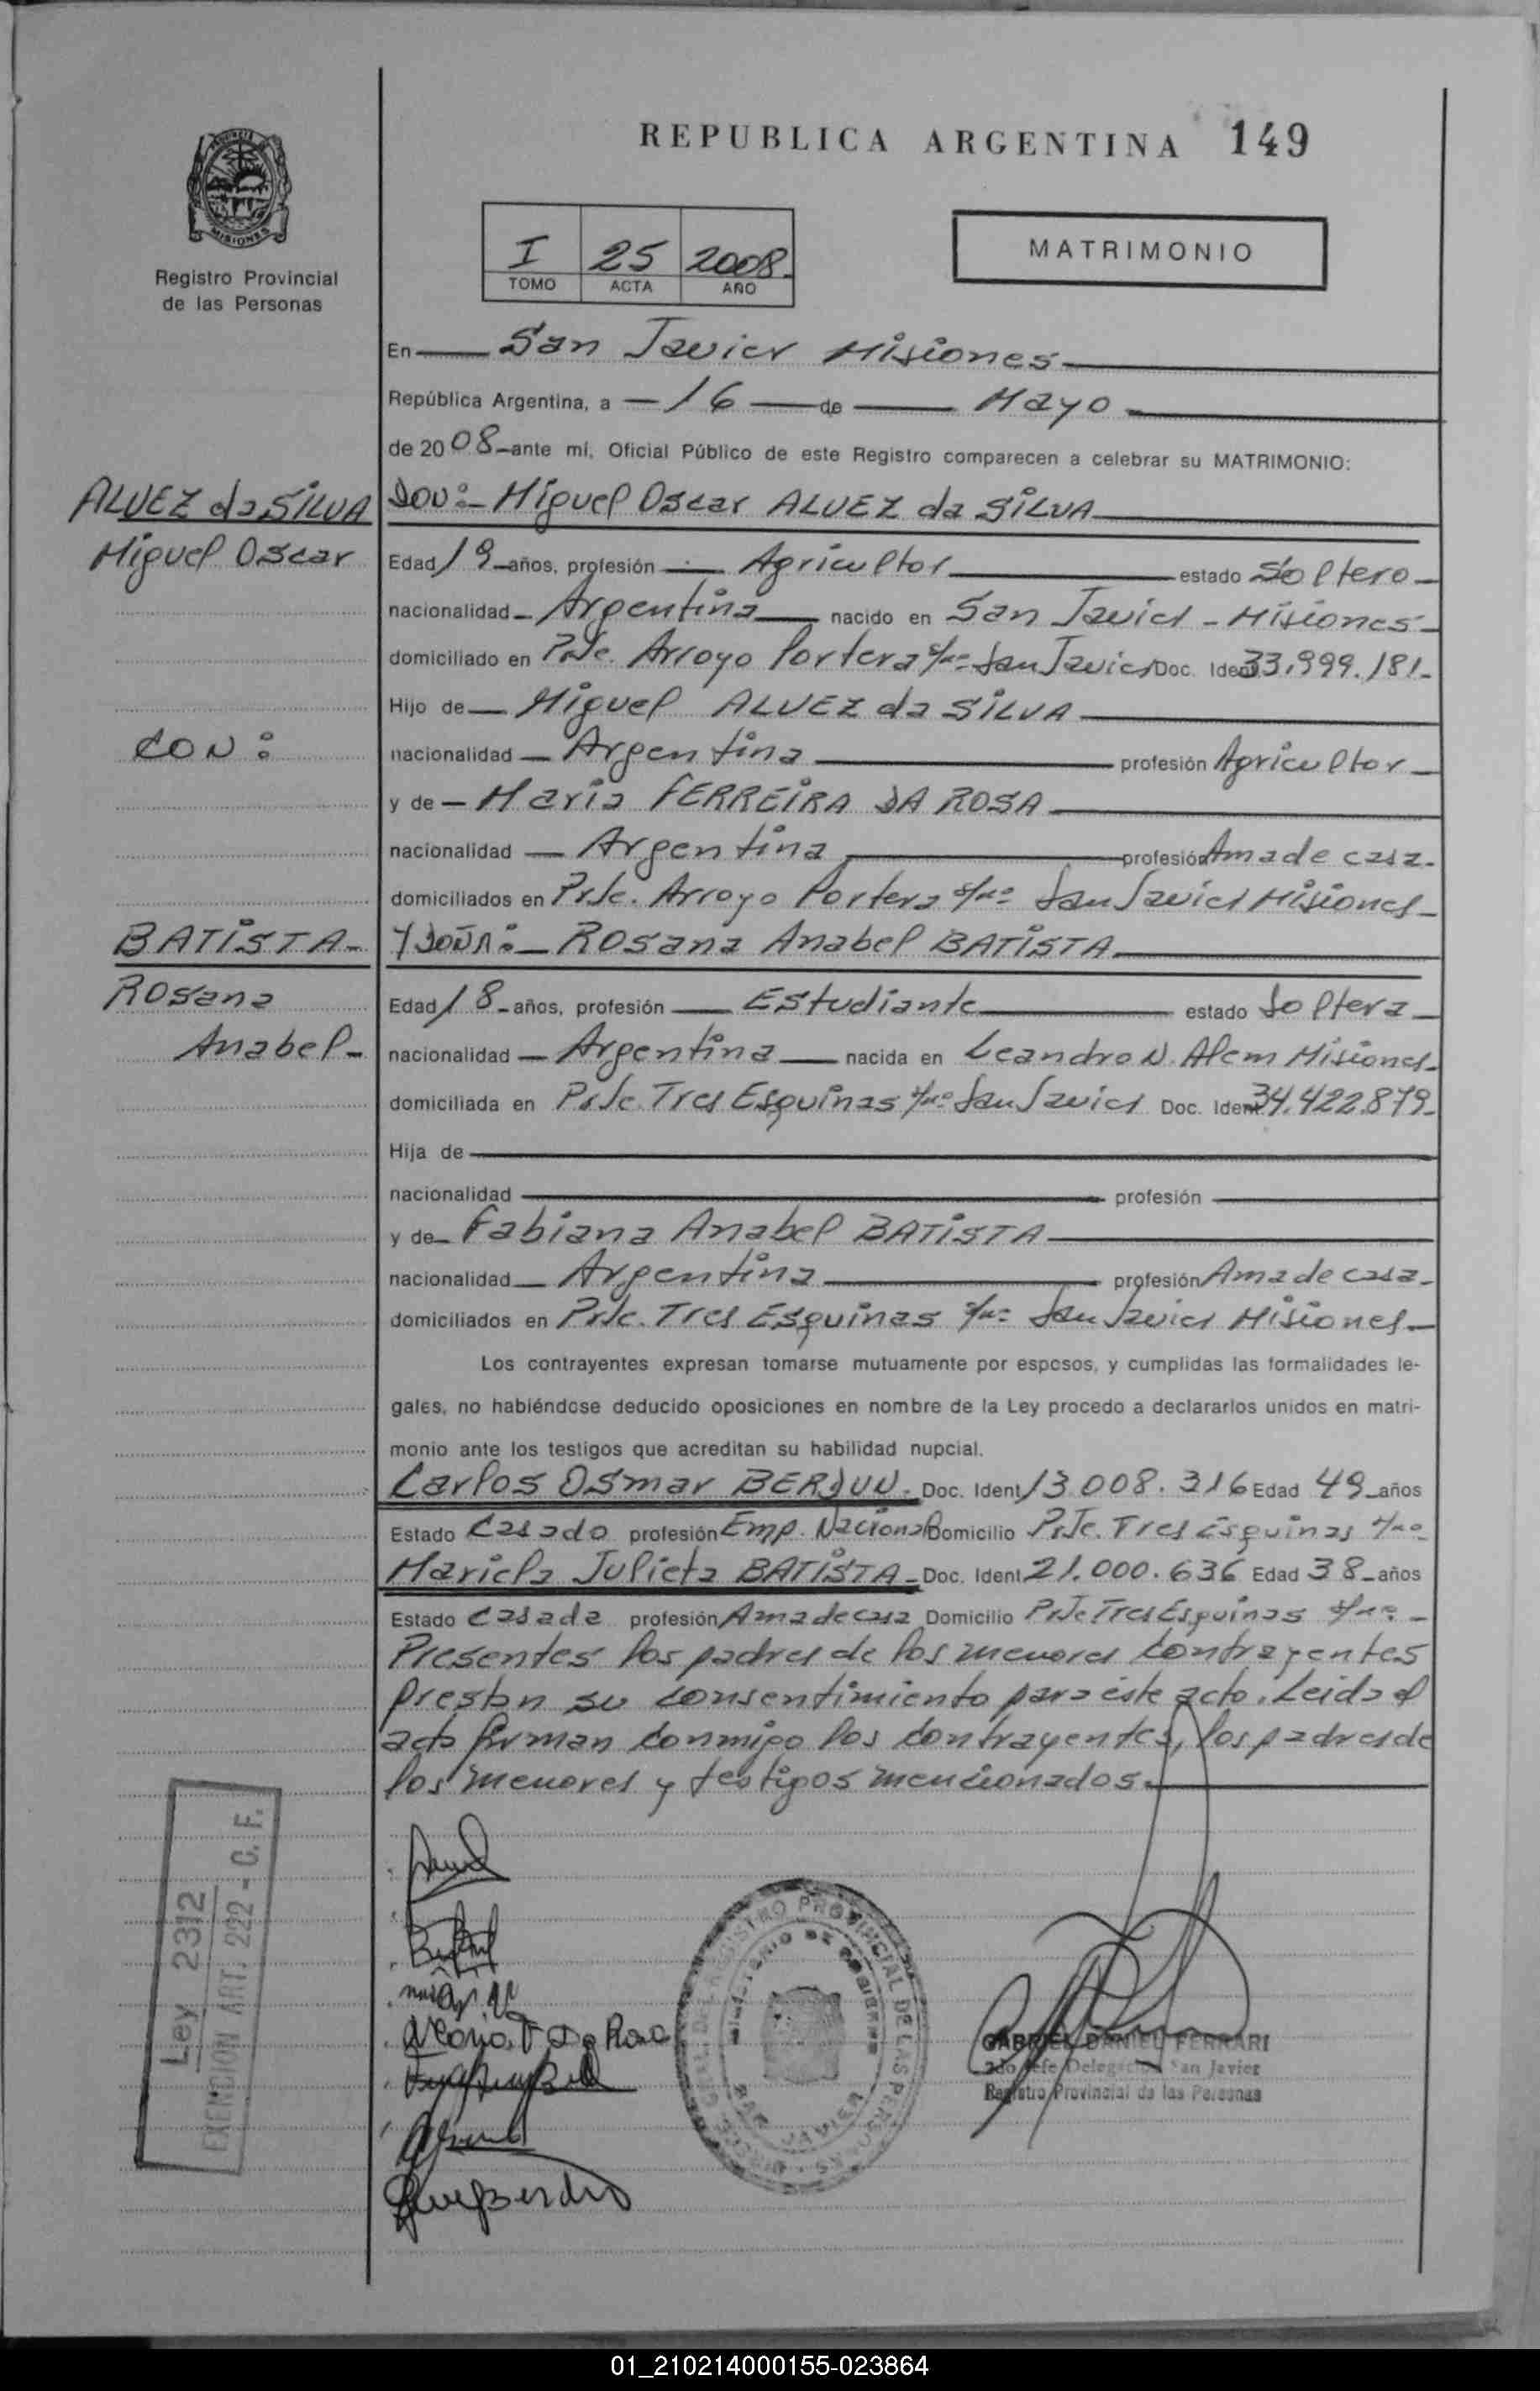 REPUBLICA ARGENTINA 149
MISIONES
Registro Provincial
de las Personas
I 25 2008
TOMO ACTA AÑO
MATRIMONIO
En San Javier Misiones
República Argentina, a 16 de Mayo
de 2008 ante mí, Oficial Público de este Registro comparecen a celebrar su MATRIMONIO:
ALVEZ da SILVA
Miguel Oscar
DON:- Miguel Oscar ALVEZ da SILVA
Edad 19 años, profesión Agricultor estado Soltero
nacionalidad Argentina nacido en San Javier - Misiones
domiciliado en Pje. Arroyo Portera s/nº San Javier Doc. Ident 33.999.181.
Hijo de Miguel ALVEZ da SILVA
CON:
nacionalidad Argentina profesión Agricultor
y de Maria FERREIRA DA ROSA
nacionalidad Argentina profesión Ama de casa.
domiciliados en Pje. Arroyo Portera s/nº San Javier Misiones
BATISTA
Rosana
Anabel
Y DOÑA:- Rosana Anabel BATISTA
Edad 18 años, profesión Estudiante estado Soltera
nacionalidad Argentina nacida en Leandro N. Alem Misiones
domiciliada en Pje. Tres Esquinas s/nº San Javier Doc. Ident 34.422.879
Hija de
nacionalidad profesión
y de Fabiana Anabel BATISTA
nacionalidad Argentina profesión Ama de casa.
domiciliados en Pje. Tres Esquinas s/nº San Javier Misiones
Los contrayentes expresan tomarse mutuamente por esposos, y cumplidas las formalidades le-
gales, no habiéndose deducido oposiciones en nombre de la Ley procedo a declararlos unidos en matri-
monio ante los testigos que acreditan su habilidad nupcial.
Carlos Osmar BERDUN. Doc. Ident 13.008.316 Edad 49 años
Estado Casado profesión Emp. Nacional Domicilio Pje. Tres Esquinas s/nº
Mariela Julieta BATISTA Doc. Ident 21.000.636 Edad 38 años
Estado Casada profesión Ama de casa Domicilio Pje Tres Esquinas s/nº
Presentes los padres de los menores contrayentes
prestan su consentimiento para éste acto. Leida el
acta firman conmigo los contrayentes, los padres de
los menores y testigos mencionados.
Ley 2312
EXENCION ART. 222 - C. F.
DIRECC. GRAL. DEL REGISTRO PROVINCIAL DE LAS PERSONAS
MINISTERIO DE GOBIERNO
SAN JAVIER
GABRIEL DANIEL FERRARI
2do Jefe Delegación San Javier
Registro Provincial de las Personas
01_210214000155-023864